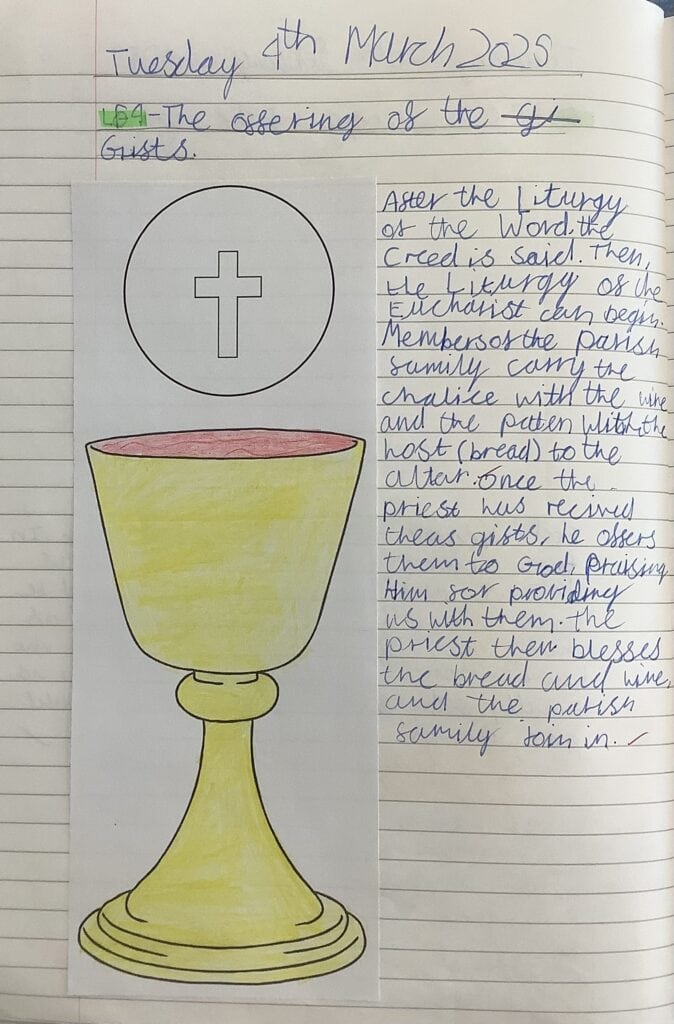 Tuesday 4th March 2025
LF4-The offering of the gi
Gifts.
After the Liturgy
of the Word, the
Creed is said. Then,
the Liturgy of the
Eucharist can begin.
Members of the parish
family carry the
chalice with the wine
and the paten with the
host (bread) to the
altar. Once the
priest has recived
theas gifts, he offers
them to God, praising
Him for providing
us with them. The
priest then blesses
the bread and wine,
and the parish
family join in.